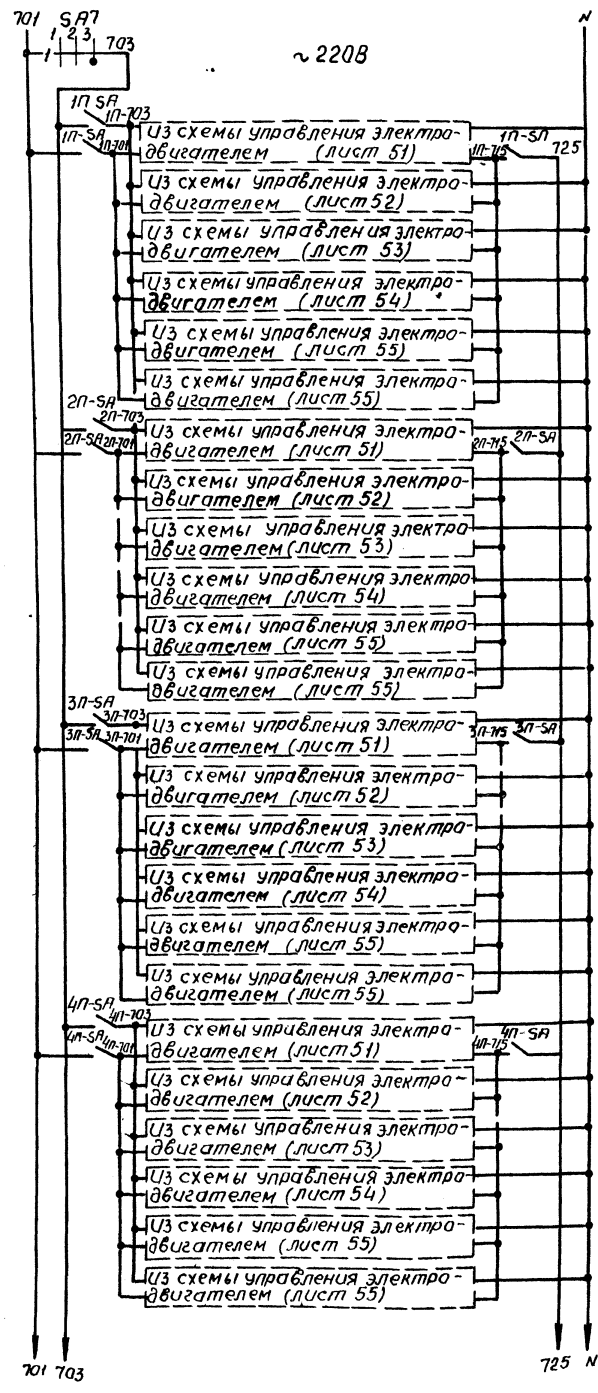 701 SA7 N
1 2 3
1 703 ~ 220В
1П-SA 1П-703
Из схемы управления электро-
двигателем (лист 51)
1П-SA 1П-701 1П-715 1П-SA 725
Из схемы управления электро-
двигателем (лист 52)
Из схемы управления электро-
двигателем (лист 53)
Из схемы управления электро-
двигателем (лист 54)
Из схемы управления электро-
двигателем (лист 55)
Из схемы управления электро-
двигателем (лист 55)
2П-SA 2П-703
Из схемы управления электро-
двигателем (лист 51)
2П-SA 2П-701 2П-715 2П-SA
Из схемы управления электро-
двигателем (лист 52)
Из схемы управления электро
двигателем (лист 53)
Из схемы управления электро
двигателем (лист 54)
Из схемы управления электро-
двигателем (лист 55)
Из схемы управления электро-
двигателем (лист 55)
3П-SA 3П-703
Из схемы управления электро-
двигателем (лист 51)
3П-SA 3П-701 3П-715 3П-SA
Из схемы управления электро-
двигателем (лист 52)
Из схемы управления электро-
двигателем (лист 53)
Из схемы управления электро-
двигателем (лист 54)
Из схемы управления электро-
двигателем (лист 55)
Из схемы управления электро-
двигателем (лист 55)
4П-SA 4П-703
Из схемы управления электро-
двигателем (лист 51)
4П-SA 4П-701 4П-715 4П-SA
Из схемы управления электро-
двигателем (лист 52)
Из схемы управления электро-
двигателем (лист 53)
Из схемы управления электро
двигателем (лист 54)
Из схемы управления электро-
двигателем (лист 55)
Из схемы управления электро-
двигателем (лист 55)
701 703 725 N